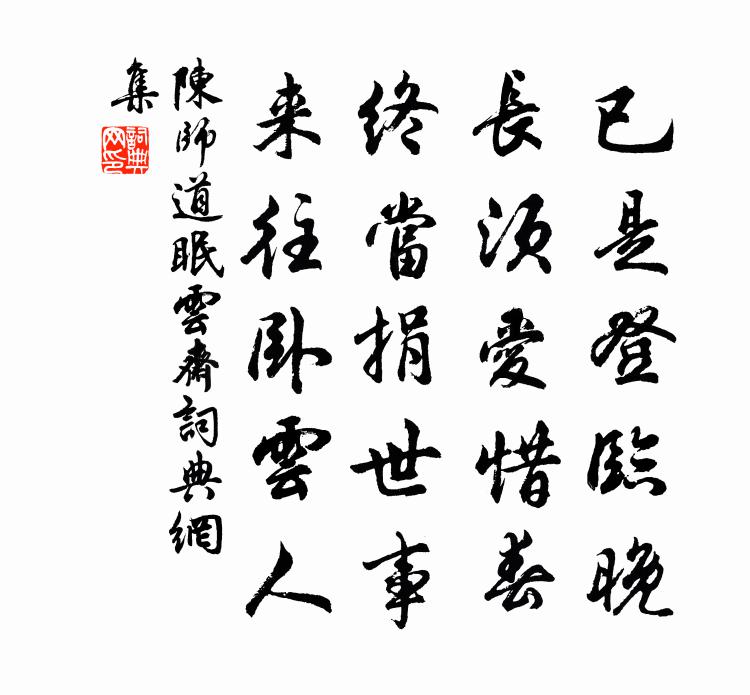 已是登臨晚
長須愛惜春
終當捐世事
来往卧雲人
陳師道眠雲齋詞典網
集
詞典
网印